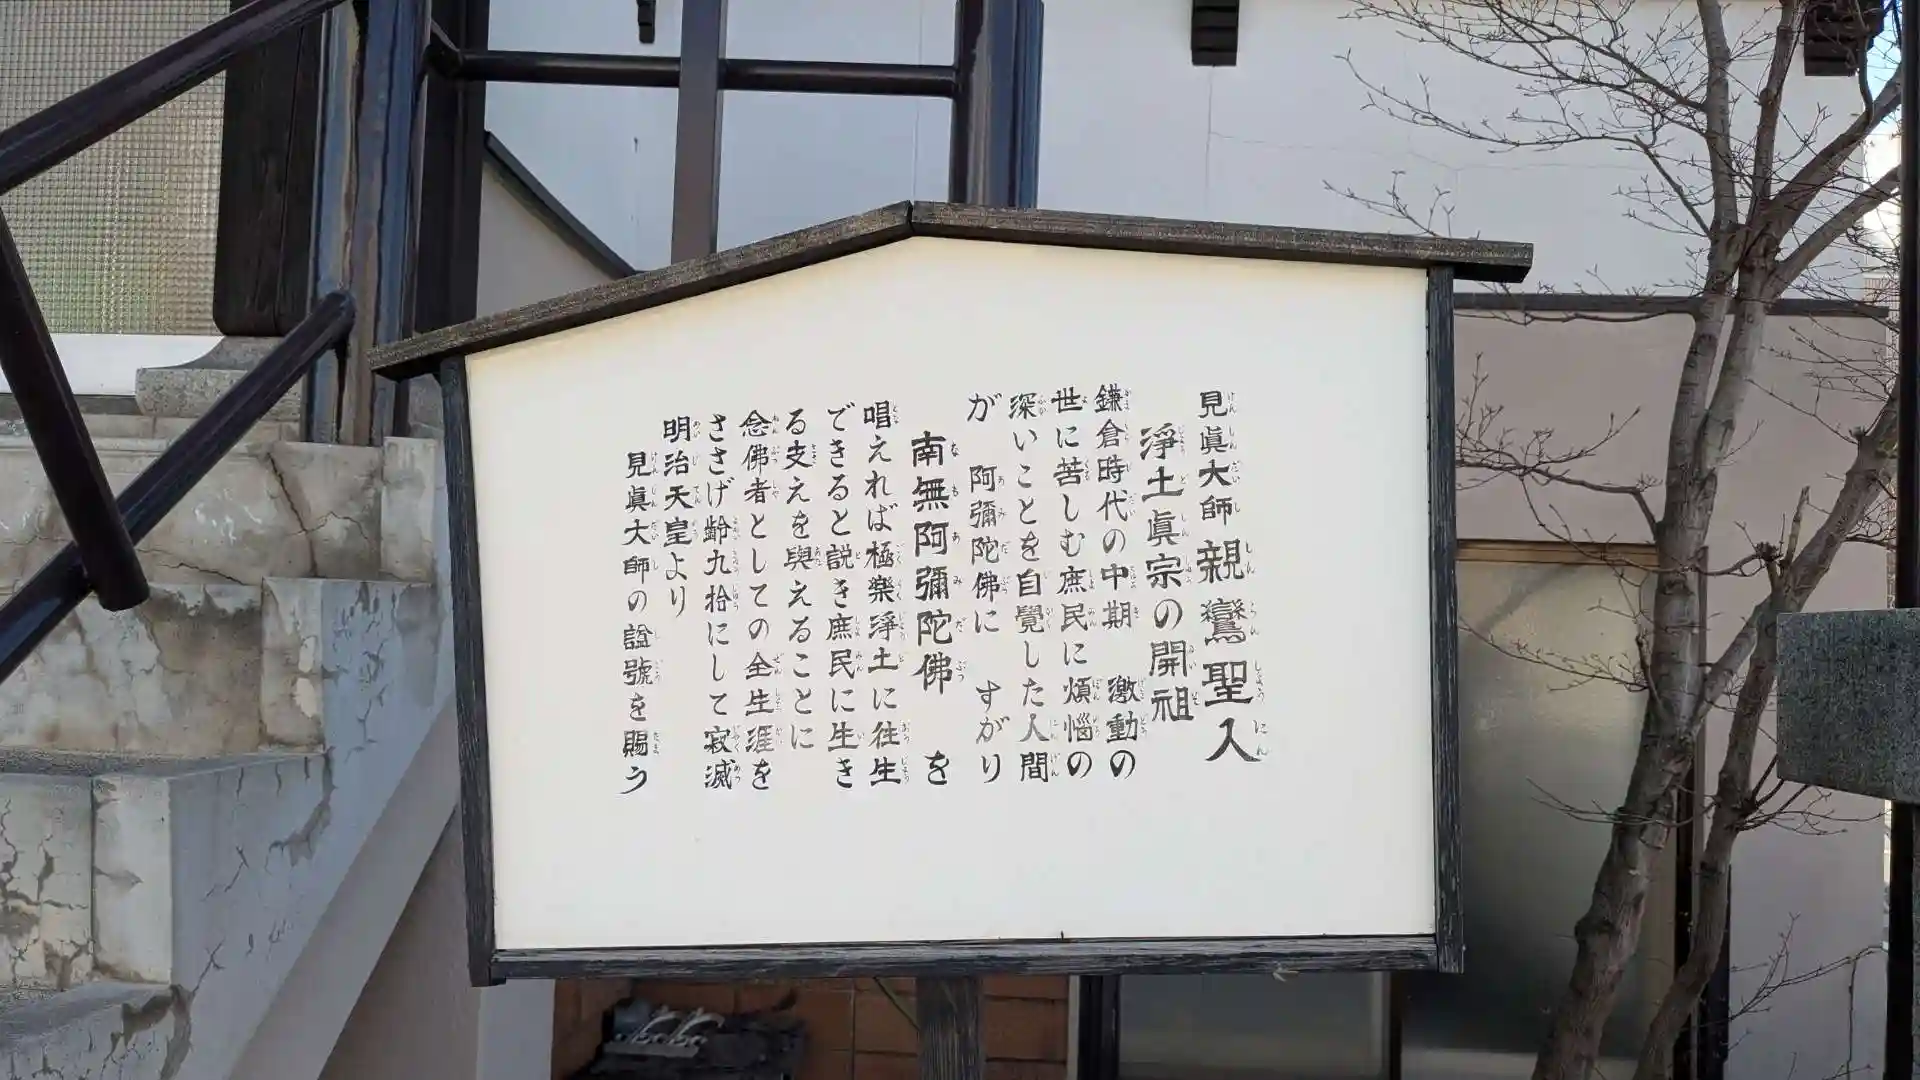 見眞大師親鸞聖人
淨土眞宗の開祖
鎌倉時代の中期 激動の
世に苦しむ庶民に煩惱の
深いことを自覺した人間
が 阿彌陀佛に すがり
南無阿彌陀佛 を
唱えれば極楽淨土に往生
できると説き庶民に生き
る支えを與えることに
念佛者としての全生涯を
ささげ齢九拾にして寂滅
明治天皇より
見眞大師の諡號を賜う